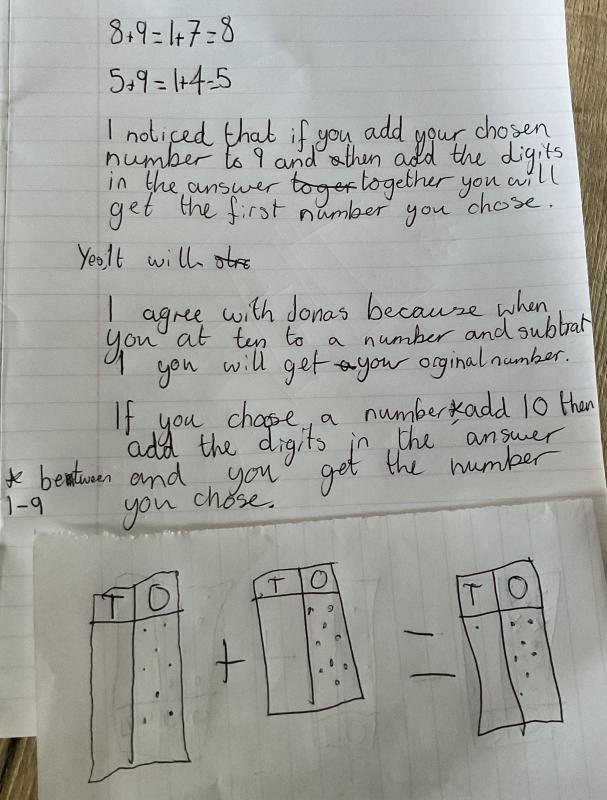 8+9=1+7=8
5+9=1+4=5
I noticed that if you add your chosen
number to 9 and then add the digits
in the answer together you will
get the first number you chose.
Yes, It will
I agree with Jonas because when
you at ten to a number and subtrat
1 you will get your orginal number.
If you choose a number * add 10 then
add the digits in the answer
* between and you get the number
1-9 you chose.
T O + T O = T O